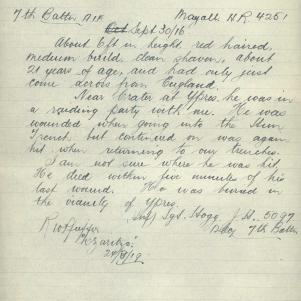 7th Battn, A.I.F. Magall N.R 4251
Oct Sept 30/16
About 6ft in height, red haired,
medium build, clean shaven, about
21 years of age, and had only just
come across from England.
Near Crater at Ypres, he was in
a raiding party with me. He was
wounded when going into the Hun
Trench, but continued on was again
hit when returning to our trenches.
I am not sure where he was hit.
He died within five minutes of his
last wound. He was buried in
the vicinity of Ypres.
Inf) Sgt. Hogg. J. H. 5097
D Coy 7th Battn